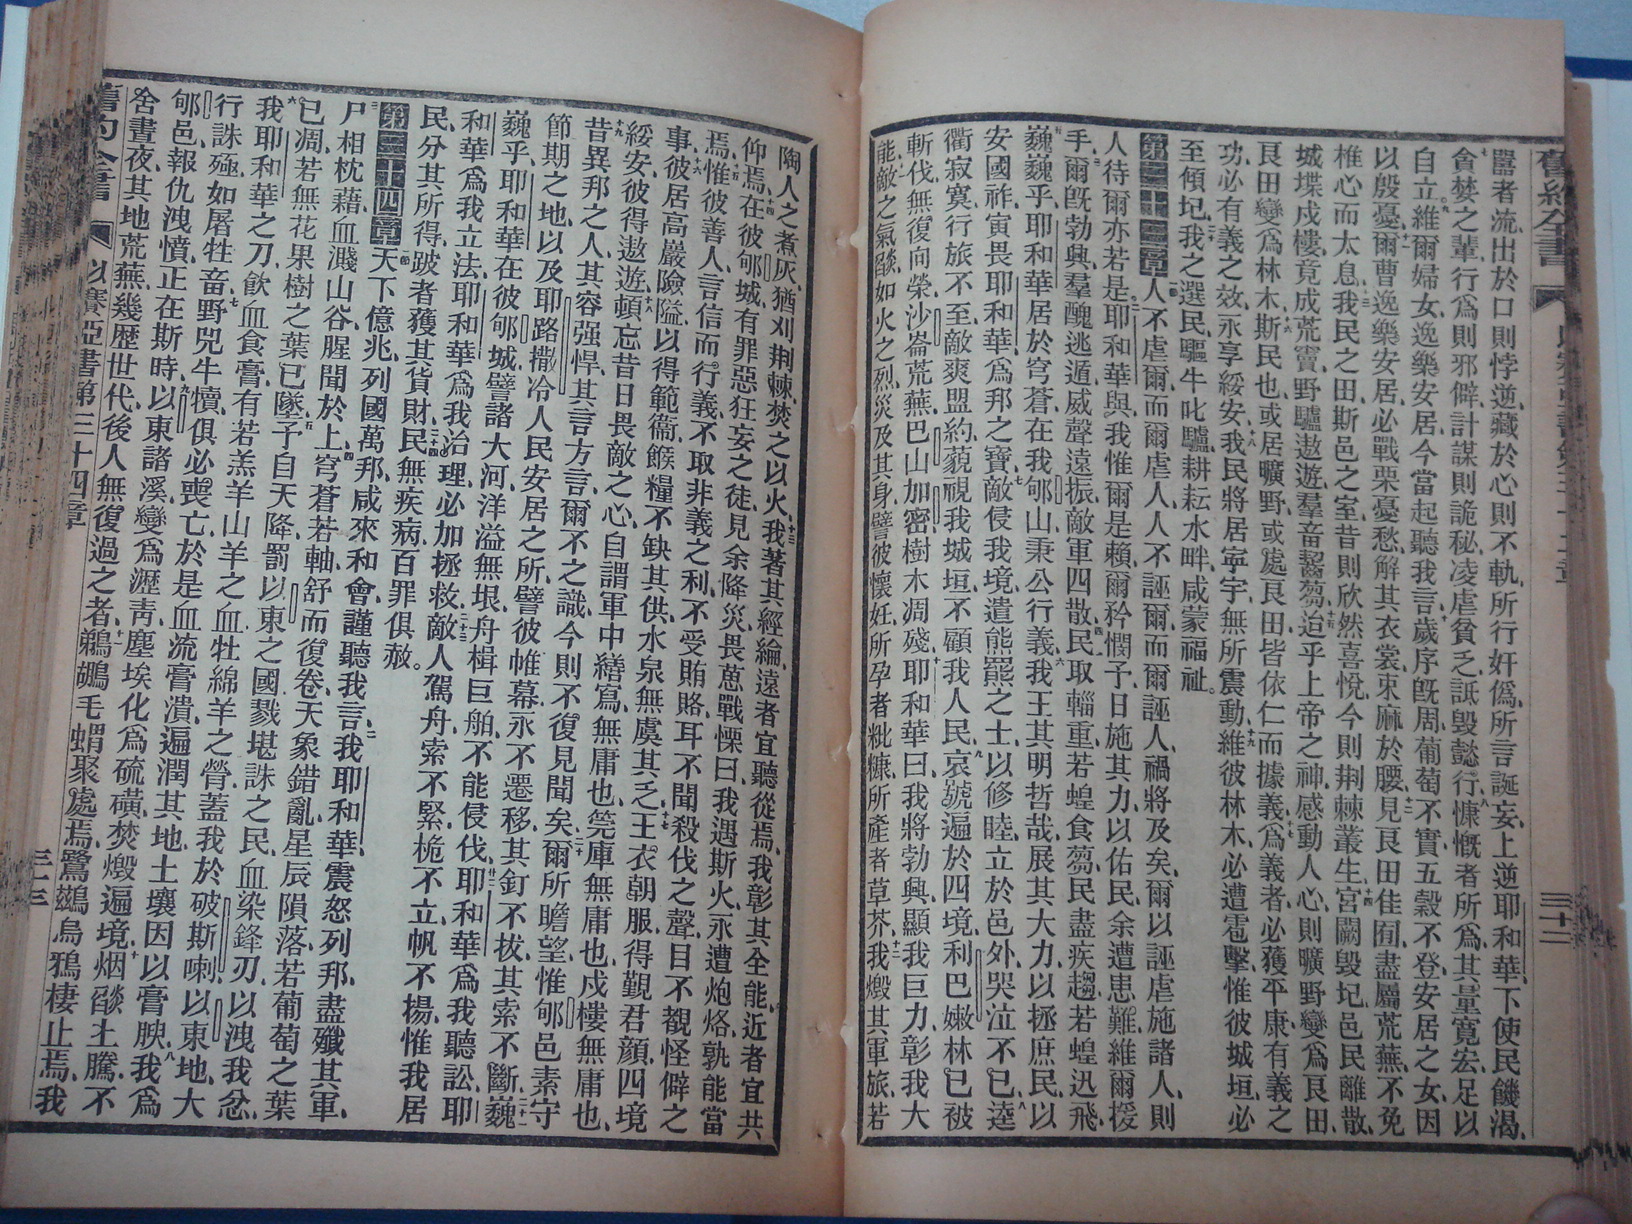 舊約全書
三十二
囂者流、出於口則悖逆、藏於心則不軌、所行奸僞、所言誕妄、上逆耶和華、下使民饑渴、
貪婪之輩、行爲則邪僻、計謀則詭秘、凌虐貧乏、詆毀懿行、慷慨者所爲、其量寬宏、足以
自立、維爾婦女、逸樂安居、今當起聽我言、歲序旣周、葡萄不實、五穀不登、安居之女、因
以殷憂、爾曹逸樂安居、必戰栗憂愁、解其衣裳、束麻於腰、見良田佳囿、盡屬荒蕪、不免
椎心而太息、我民之田、斯邑之室、昔則欣然喜悅、今則荆棘叢生、宮闕毀圮、邑民離散、
城堞戍樓、竟成荒竇、野驢遨遊、羣畜齧芻、迨乎上帝之神、感動人心、則曠野變爲良田、
良田變爲林木、斯民也、或居曠野、或處良田、皆依仁而據義、爲義者必獲平康、有義之
功、必有義之效、永享綏安、我民將居寧宇、無所震動、維彼林木、必遭雹擊、惟彼城垣、必
至傾圮、我之選民、驅牛叱驢、耕耘水畔、咸蒙福祉。
第三十三章 人不虐爾、而爾虐人、人不誣爾、而爾誣人、禍將及矣、爾以誣虐施諸人、則
人待爾亦若是、耶和華與、我惟爾是賴、爾矜憫予、日施其力、以佑民、余遭患難、維爾援
手、爾旣勃興、羣醜逃遁、威聲遠振、敵軍四散、民取輜重、若蝗食芻、民盡疾趨、若蝗迅飛、
巍巍乎、耶和華居於穹蒼、在我郇山、秉公行義、我王其明哲哉、展其大力、以拯庶民、以
安國祚、寅畏耶和華、爲邦之寶、敵侵我境、遣能羆之士、以修睦、立於邑外、哭泣不已、逵
衢寂寞、行旅不至、敵爽盟約、藐視我城垣、不顧我人民、哀號遍於四境、利巴嫩林、已被
斬伐、無復向榮、沙崙荒蕪、巴山加密、樹木凋殘、耶和華曰、我將勃興、顯我巨力、彰我大
能、敵之氣燄、如火之烈、災及其身、譬彼懷妊、所孕者粃糠、所產者草芥、我燬其軍旅、若
陶人之煮灰、猶刈荆棘、焚之以火、我著其經綸、遠者宜聽從焉、我彰其全能、近者宜共
仰焉、在彼郇城、有罪惡狂妄之徒、見余降災、畏葸戰慄曰、我遇斯火、永遭炮烙、孰能當
焉、惟彼善人、言信而行義、不取非義之利、不受賄賂、耳不聞殺伐之聲、目不覩怪僻之
事、彼居高巖險隘、以得範衞、餱糧不缺其供、水泉無虞其乏、王衣朝服、得覲君顔、四境
綏安、彼得遨遊、頓忘昔日畏敵之心、自謂軍中繕寫、無庸也、筦庫無庸也、戍樓無庸也、
昔異邦之人、其容强悍、其言方言、爾不之識、今則不復見聞矣、爾所瞻望、惟郇邑素守
節期之地、以及耶路撒冷人民安居之所、譬彼帷幕、永不遷移、其釘不拔、其索不斷、巍
巍乎、耶和華在彼郇城、譬諸大河、洋溢無垠、舟楫巨舶、不能侵伐、耶和華爲我聽訟、耶
和華爲我立法、耶和華爲我治理、必加拯救、敵人駕舟、索不緊、桅不立、帆不揚、惟我居
民、分其所得、跛者獲其貨財、民無疾病、百罪俱赦。
第三十四章 天下億兆、列國萬邦、咸來和會、謹聽我言、我耶和華震怒列邦、盡殲其軍、
尸相枕藉、血濺山谷、腥聞於上、穹蒼若軸、舒而復卷、天象錯亂、星辰隕落、若葡萄之葉
已凋、若無花果樹之葉已墜、予自天降罰、以東之國、戮堪誅之民、血染鋒刃、以洩我忿、
我耶和華之刀、飮血食膏、有若羔羊山羊之血、牡綿羊之膋、蓋我於破斯喇、以東地、大
行誅殛、如屠牲畜、野兕牛犢、俱必喪亡、於是血流膏潰、遍潤其地、土壤因以膏腴、我爲
郇邑報仇洩憤、正在斯時、以東諸溪、變爲瀝靑、塵埃化爲硫磺、焚燬遍境、烟燄上騰、不
舍晝夜、其地荒蕪、幾歷世代、後人無復過之者、鵜鶘毛蝟聚處焉、鷺鷀烏鴉棲止焉、我
舊約全書
以賽亞書第三十四章
三十三